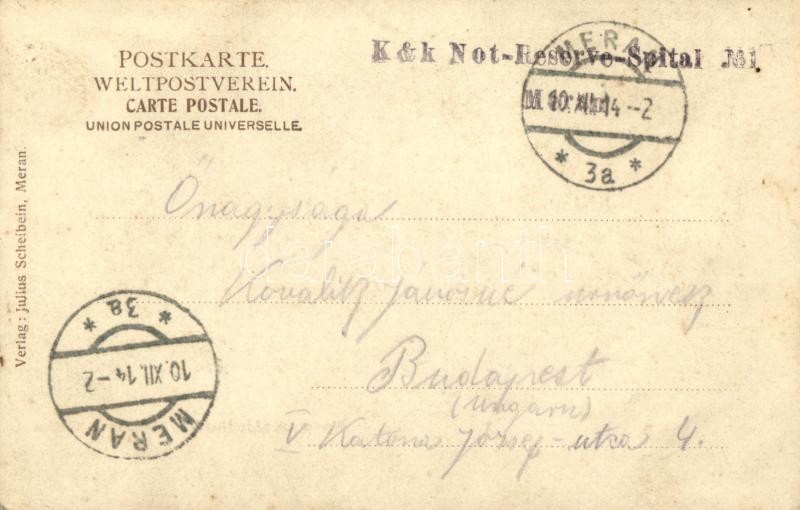 POSTKARTE.
WELTPOSTVEREIN.
CARTE POSTALE.
UNION POSTALE UNIVERSELLE.
K & k Not-Reserve-Spital №1
MERAN
10.XII.14--2
* 3a *
Verlag: Julius Scheibein, Meran.
Őnagysága
Kovalitz Jánosné
Budapest
(Ungarn)
V Katona József-utca 4.
MERAN
10.XII.14-2
* 3a *
darabanth